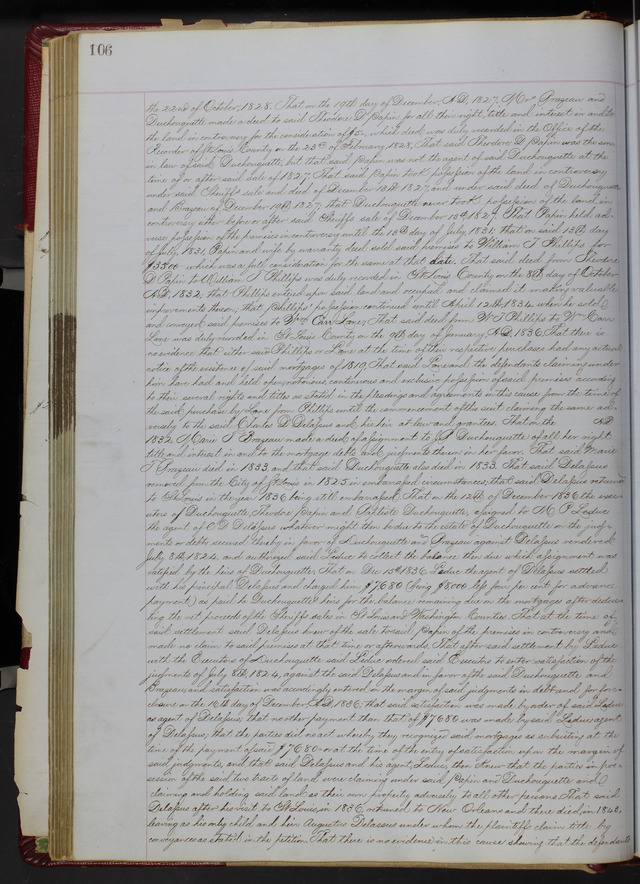 106
the 22nd of October, 1828. That on the 19th day of December, A.D. 1827, Mrs Brazeau and
Duchouquette made a deed to said Theodore D Papin for all their right, title and interest in and to
the land in controversy for the consideration of $5, which deed was duly recorded in the Office of the
Recorder of St Louis County on the 23rd of February 1828, That said Theodore D Papin was the son
in law of said Duchouquette but that said Papin was not the agent of said Duchouquette at the
time of or after said sale of 1827, That said Papin took possession of the land in controversy
under said Sheriffs sale and deed of December 18th 1827 and under said deed of Duchouquette
and Brazeau of December 19th 1827, that Duchouquette never took possession of the land in
controversy either before or after said Sheriffs sale of December 18th 1827. That Papin held ad-
verse possession of the premises in controversy until the 13th day of July, 1831, that on said 13th day
of July, 1831, Papin and wife by warranty deed sold said premises to William T Phillips for
$3500 which was a full consideration for the same at that date. That said deed from Theodore
D Papin to William T Phillips was duly recorded in St Louis County on the 8th day of October
A.D, 1832, that Phillips entered upon said land and occupied and claimed it making valuable
improvements thereon, that Phillips' possession continued until April 12th, 1834 when he sold
and conveyed said premises to Wm Carr Lane, That said deed from W T Phillips to Wm Carr
Lane was duly recorded in St Louis County on the 9th day of January, A.D. 1836, That there is
no evidence that either said Phillips or Lane at the time of their respective purchases had any actual
notice of the existence of said mortgages of 1819, That said Lane and the defendants claiming under
him have had and held open, notorious, continuous and exclusive possession of said premises according
to their several rights and titles as stated in the pleadings and agreements in this cause from the time of
the said purchase by Lane from Phillips until the commencement of this suit claiming the same ad-
versely to the said Charles D Delassus and his heir at law and grantees. That on the A.D
1832 Marie T Brazeau made a deed of assignment to Duchouquette of all her right
title and interest in and to the mortgage debts and judgments thereon in her favor. That said Marie
T Brazeau died in 1833, and that said Duchouquette also died in 1833. That said Delassus
removed from the City of St Louis in 1825 in embarrassed circumstances, that said Delassus returned
to St Louis in the year 1836 being still embarrassed. That on the 12th of December 1836 the exec-
utors of Duchouquette, Theodore Papin and Baptiste Duchouquette, assigned to M P Leduc
the agent of C D Delassus whatever might then be due to the estate of Duchouquette on the judg-
ments or debts secured thereby in favor of Duchouquette and Brazeau against Delassus rendered
July 8th 1824, and authorized said Leduc to collect the balance then due which assignment was
ratified by the heirs of Duchouquette, That on Dec 15th 1836 Leduc the agent of Delassus settled
with his principal Delassus and charged him $7680 (being $8000 less four per cent for advance
payment) as paid to Duchouquette's heirs for the balance remaining due on the mortgages after deduc-
ting the net proceeds of the Sheriffs sales in St Louis and Washington Counties That at the time of
said settlement said Delassus knew of the sale to said Papin of the premises in controversy and
made no claim to said premises at that time or afterwards. That after said settlement by Leduc
with the Executors of Duchouquette said Leduc ordered said Executors to enter satisfaction of the
judgments of July 8th, 1824, against the said Delassus and in favor of the said Duchouquette and
Brazeau and satisfaction was accordingly entered on the margin of said judgments in debt and for fore-
closure on the 16th day of December A.D. 1836; that said satisfaction was made by order of said Leduc
as agent of Delassus, that no other payment than that of $7680 was made by said Leduc agent
of Delassus, that the parties did no act whereby they recognized said mortgages as subsisting at the
time of the payment of said $7680 or at the time of the entry of satisfaction upon the margin of
said judgments, and that said Delassus and his agent, Leduc, then knew that the parties in pos-
session of the said two tracts of land were claiming under said Papin and Duchouquette and
claiming and holding said land as their own property adversely to all other persons. That said
Delassus after his visit to St Louis, in 1836, returned to New Orleans and there died in 1842,
leaving as his only child and heir Augustus Delassus under whom the plaintiffs claim title by
conveyance as stated in the petition. That there is no evidence in this cause showing that the defendants